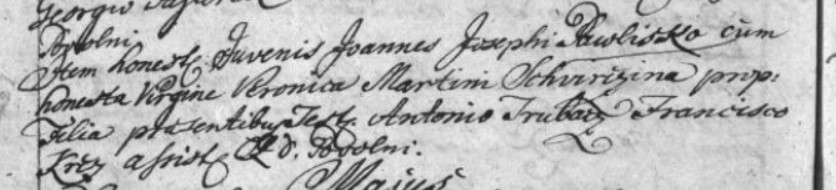 Georgio
Podolni
Item honest Juvenis Joannes Josephi Pawlisko cum
honesta Virgine Veronica Martini Schvirizina prop:
Filia præsentibus Test. Antonio Trubacz Francisco
Krez assist R d. Podolni.
Majus